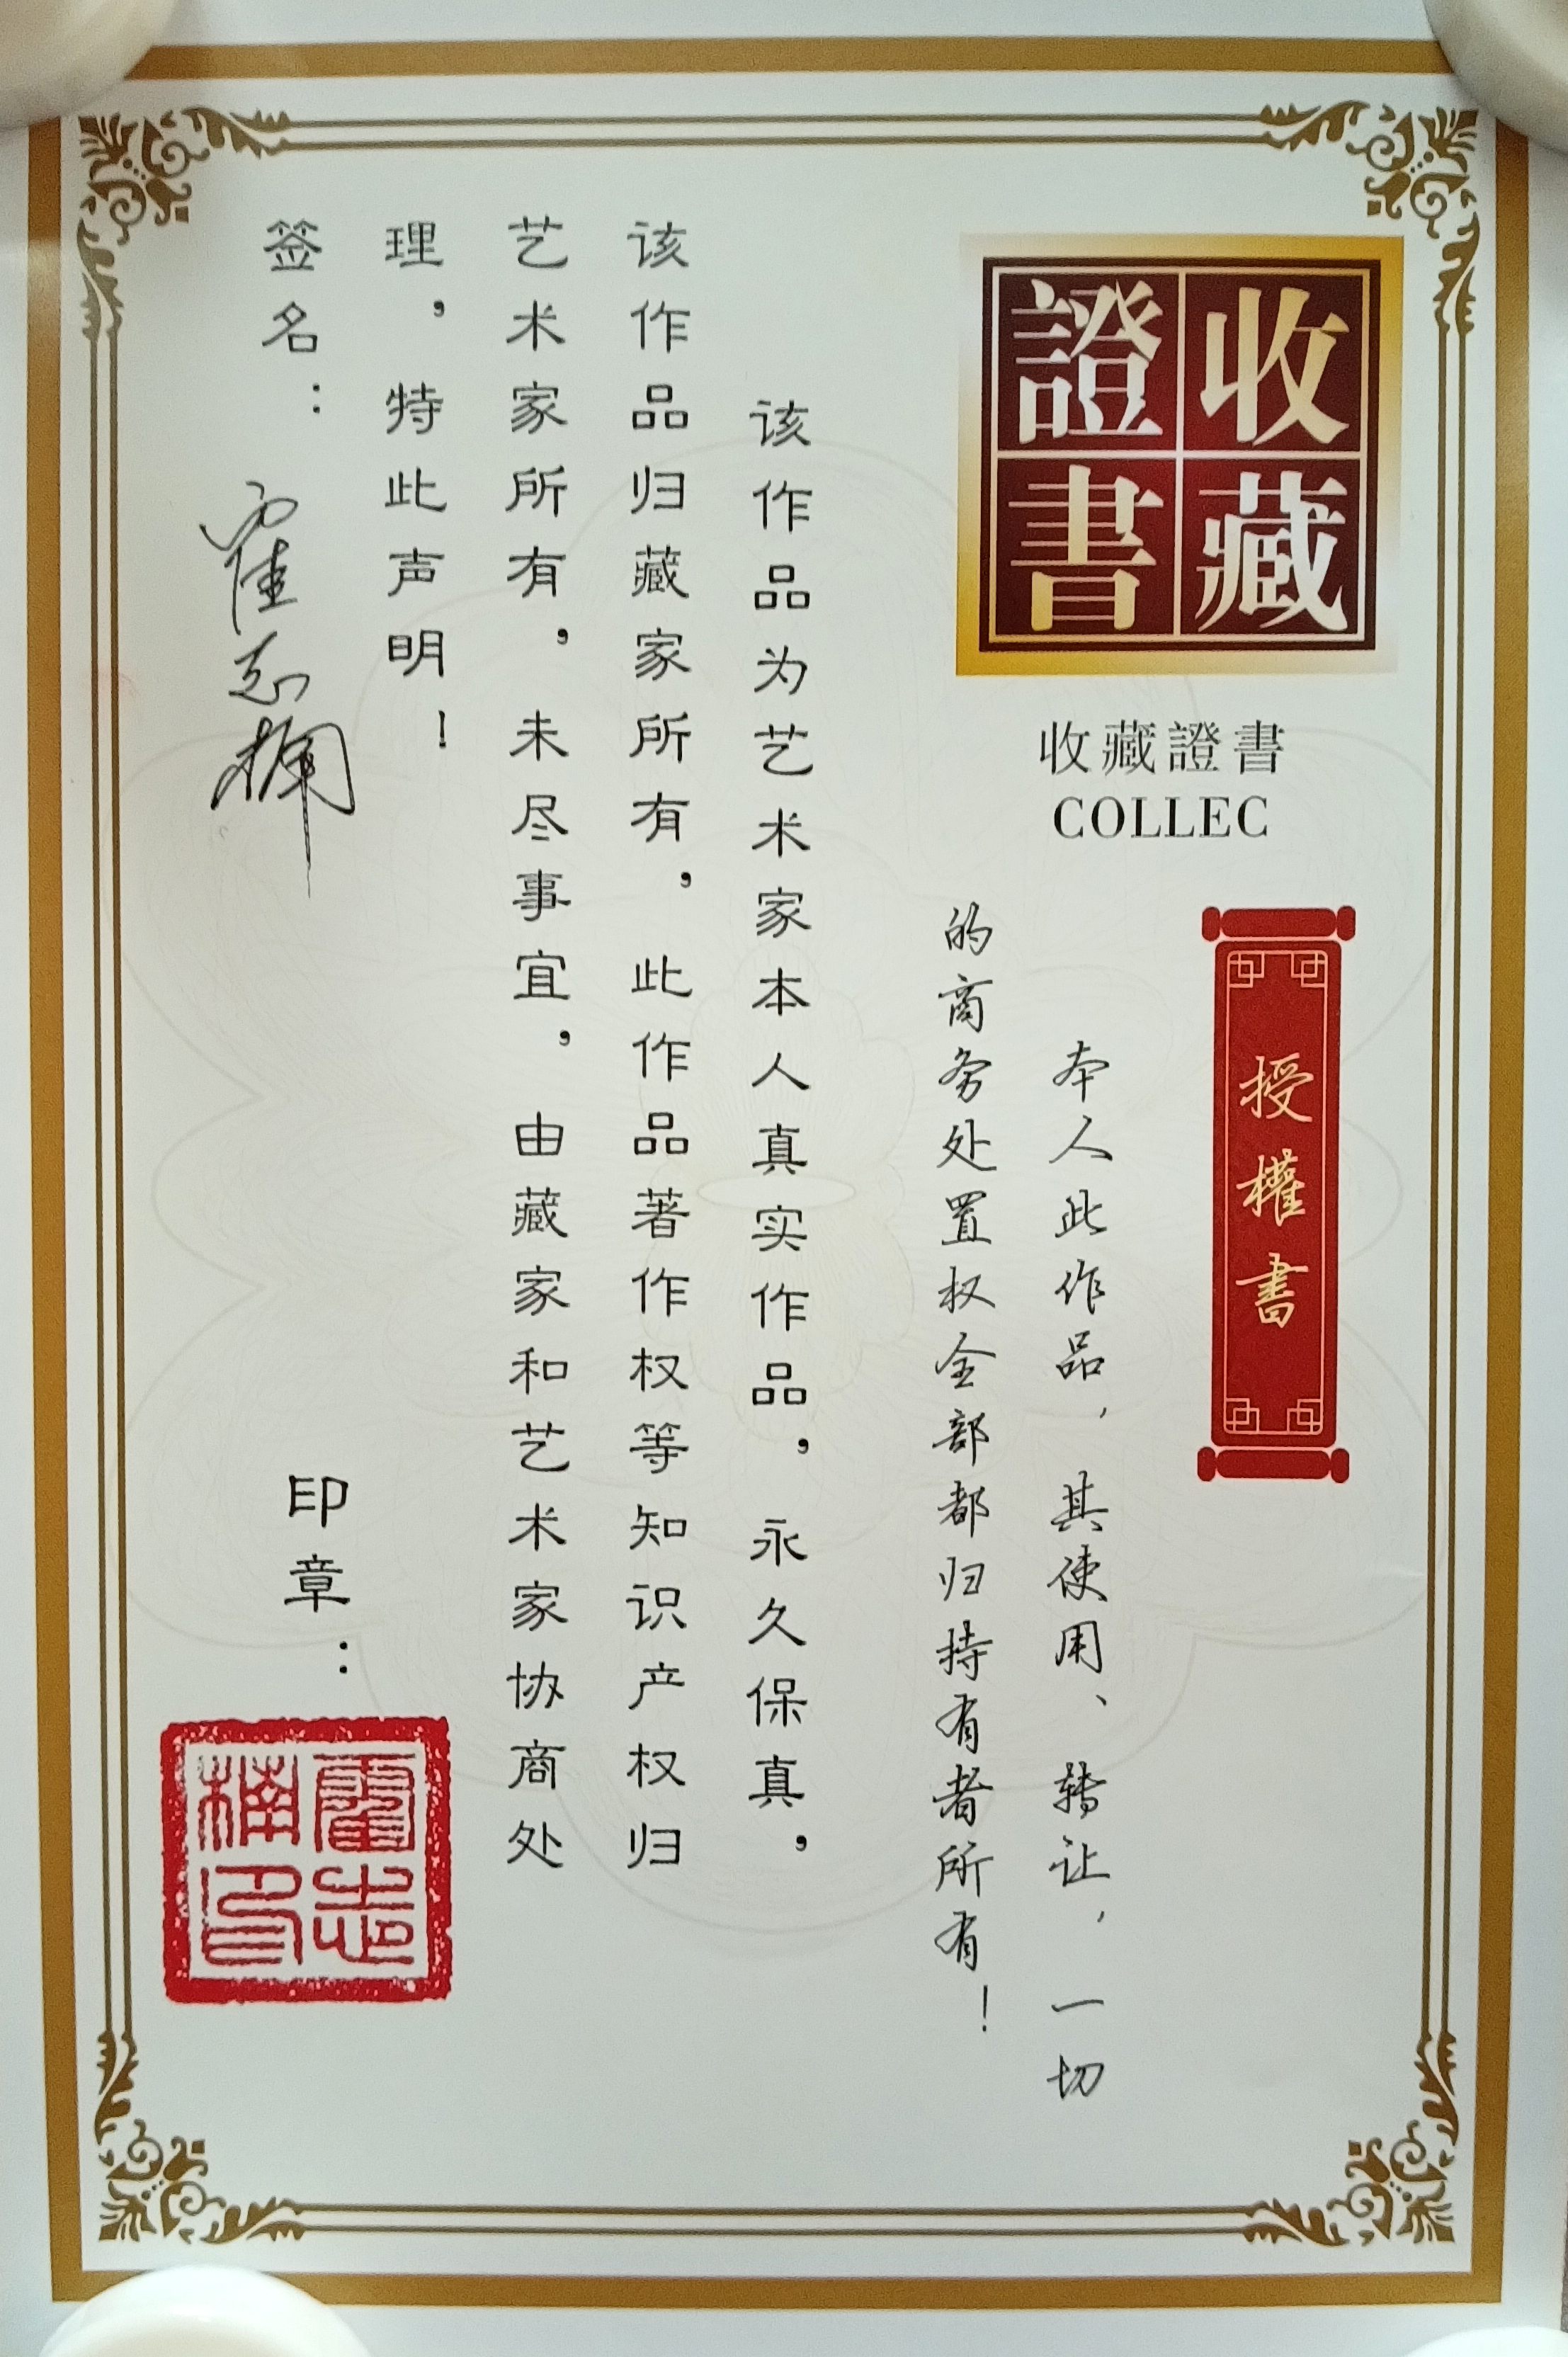 收藏
證書
收藏證書
COLLEC
授權書
本人此作品,其使用、转让,一切
的商务处置权全部都归持有者所有!
该作品为艺术家本人真实作品,永久保真,
该作品归藏家所有,此作品著作权等知识产权归
艺术家所有,未尽事宜,由藏家和艺术家协商处
理,特此声明!
签名:霍志楠
印章:
霍志
楠印